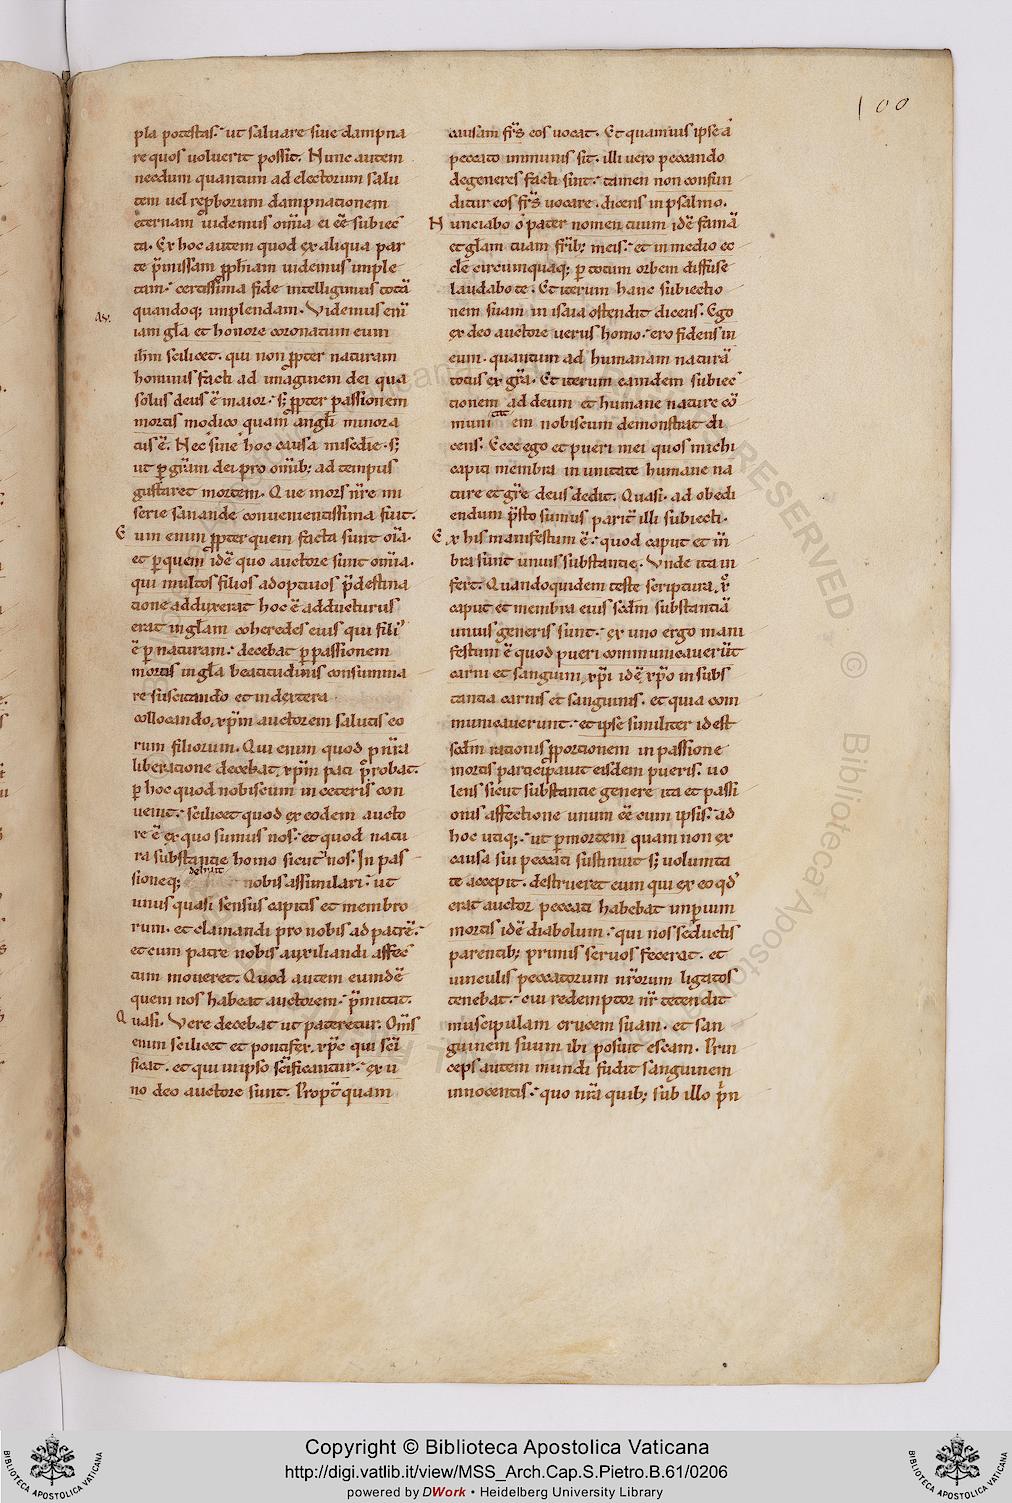 100
pla potestas. ut saluare siue dampna
re quos uoluerit possit. Nunc autem
necdum quantum ad electorum salu
tem uel rep̱borum dampnationem
eternam uidemus om̄ia ei eē̄ subiec
ta. Ex hoc autem quod ex aliqua par
te p̄missam ꝓph̄iam uidemus imple
tam. certissima fide intelligimus totā
quandoq; implendam. Videmus eni
Av.
iam gl̄a et honore coronatum eum
ih̄m scilicet. qui non ꝓpter naturam
hominis facti ad imaginem dei qua
solus deus ē maior. s; ꝓpter passionem
mortis modico quam angl̄i minora
tus ē. Nec siue hoc causa misedie. s;
ut ꝑ gr̄am dei pro om̄ib; ad tempus
gustaret mortem. Que mors nr̄e mi
serie sanande conuenientissima fuit.
E um enim ꝓpter quem facta sunt oīa.
et ꝑ quem idē quo auctore sunt om̄ia.
qui multos filios adoptiuos p̄destina
tione adduxerat hoc ē adducturus
erat in gl̄am coheredes eius qui fili᾽
ē ꝑ naturam. decebat ꝑ passionem
mortis in gl̄a beatitudinis consumma
re suscitando et in dextera
collocando, xp̄m auctorem salutis eo
rum filiorum. Qui enim quod p nr̄a
liberatione decebat, xp̄m pati p̊robat.
ꝑ hoc quod nobiscum in ceteris con
uenit. scilicet quod ex eodem aucto
re ē ex quo sumus nos. et quod natu
ra substantie homo sicut nos. In pas
sioneq; debuit nobis assimilari. ut
unus quasi sensus capitis et membro
rum. et clamandi pro nobis ad patrē.
et cum patre nobis auxiliandi affec
tum moueret. Quod autem eundē
quem nos habeat auctorem. p̄mittit.
Q uasi. Vere decebat ut pateretur. Om̄s
enim scilicet et pontifex, xp̄c qui sc̄i
ficat. et qui in ipso sc̄ificantur. ex u
no deo auctore sunt. Propt̄ quam
causam fr̄s eos uocat. Et quamuis ipse a
peccato inmunis sit. illi uero peccando
degeneres facti sint. tamen non confun
ditur eos fr̄s uocare. dicens in psalmo.
N unciabo o pater nomen tuum idē famā
et gl̄am tuam fr̄ib; meis. et in medio ec
cl̄e circumquaq; ꝑ totum orbem diffuse
laudabo te. Et iterum hanc subiectio
nem suam in isaia ostendit dicens. Ego
ex deo auctore uerus homo. ero fidens in
eum. quantum ad humanam naturā
totus ex gr̄a. Et iterum eamdem subiec
tionem ad deum et humane nature cō
munictatem nobiscum demonstrat di
cens. Ecce ego et pueri mei quos michi
capiti membra in unitate humane na
ture et gr̄e deus dedit. Quasi. ad obedi
endum p̄sto sumus parit̄ illi subiecti.
E x his manifestum ē. quod caput et m̄
bra sunt unius substantie. Vnde ita in
fert. Quandoquidem teste scriptura,
caput et membra eius scd̄m substantiā
unius generis sunt. ex uno ergo mani
festum ē quod pueri communicauer̄t
carni et sanguini, xp̄i idē xp̄o in subs
tantia carnis et sanguinis. et quia com
municauerunt. et ipse similiter id est
scd̄m rationis ꝓportionem in passione
mortis participauit eisdem pueris. uo
lens sicut substantie genere ita et passi
onis affectione unum eē̄ cum ipsis. ad
hoc utiq;. ut ꝑ mortem quam non ex
causa sui peccati sustinuit s; uolunta
te accepit. destrueret eum qui ex eo qd̄
erat auctor peccati habebat imperium
mortis idē diabolum. qui nos seductis
parentib; primis seruos fecerat. et
uinculis peccatorum nr̄orum ligatos
tenebat. cui redemptor nr̄ tetendit
muscipulam crucem suam. et san
guinem suum ibi posuit escam. Prin
ceps autem mundi fudit sanguinem
innocentis. quo nr̄a quib; sub illo p̄n
Copyright © Biblioteca Apostolica Vaticana
http://digi.vatlib.it/view/MSS_Arch.Cap.S.Pietro.B.61/0206
powered by DWork • Heidelberg University Library
BIBLIOTECA APOSTOLICA VATICANA
BIBLIOTECA APOSTOLICA VATICANA